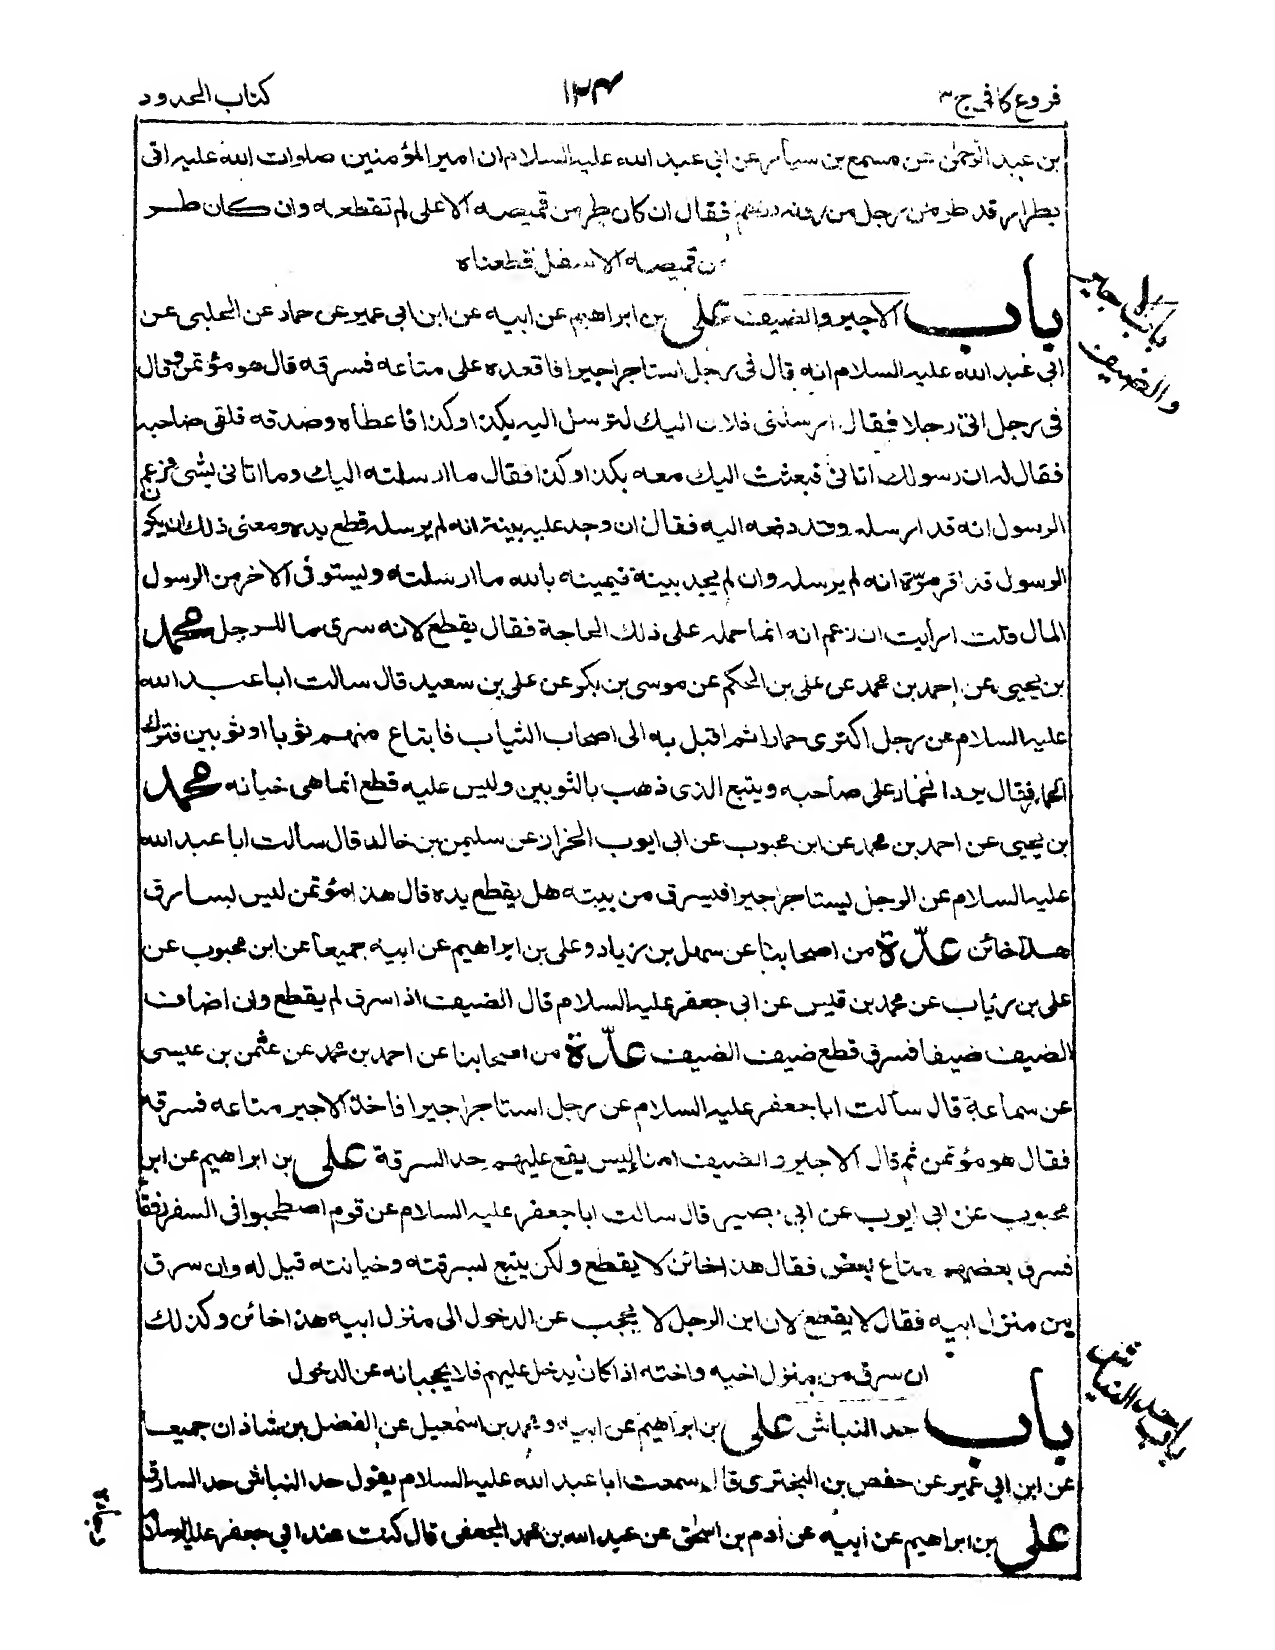 فروع كافى ج ٣
١٣٤
كتاب الحدود
بن عبد الرحمن عن مسمع بن سيار عن ابى عبد الله عليه السلام ان امير المؤمنين صلوات الله عليه اتى
بطرار قد طر من رجل من فقال ان كان طر من قميصه الاعلى لم نقطعه وان كان طر
من قميصه الاسفل قطعناه
باب الاجير والضيف على بن ابراهيم عن ابيه عن ابن ابى عمير عن حماد عن الحلبى عن
ابى عبد الله عليه السلام انه قال فى رجل استاجر اجيرا فاقعده على متاعه فسرقه قال هو مؤتمن وقال
فى رجل اتى رجلا فقال ارسلنى فلان اليك لترسل اليه بكذا وكذا فاعطاه وصدقه فلقى صاحبه
فقال له ان رسولك اتانى فبعثت اليك معه بكذا وكذا فقال ما ارسلته اليك وما اتانى بشئ فزعم
الرسول انه قد ارسله وقد دفعه اليه فقال ان وجد عليه بينة انه لم يرسله قطع يده ومعنى ذلك ان يكون
الرسول قد اقر مرّة انه لم يرسله وان لم يجد بينة فيمينه بالله ما ارسلته ويستوفى الاخر من الرسول
المال قلت ارأيت ان زعم انه انما حمله على ذلك الحاجة فقال يقطع لانه سرق مال الرجل محمد
بن يحيى عن احمد بن محمد عن على بن الحكم عن موسى بن بكر عن على بن سعيد قال سالت ابا عبد الله
عليه السلام عن رجل اكترى حمارا ثم اقبل به الى اصحاب الثياب فابتاع منهم ثوبا او ثوبين فترك
الحمار فقال يرد الحمار على صاحبه ويتبع الذى ذهب بالثوبين وليس عليه قطع انما هى خيانه محمد
بن يحيى عن احمد بن محمد عن ابن محبوب عن ابى ايوب الخزاز عن سليمن بن خالد قال سالت ابا عبد الله
عليه السلام عن الرجل يستاجر اجيرا فيسرق من بيته هل يقطع يده قال هذا مؤتمن ليس بسارق
هذا خائن عدّة من اصحابنا عن سهل بن زياد وعلى بن ابراهيم عن ابيه جميعا عن ابن محبوب عن
على بن رئاب عن محمد بن قيس عن ابى جعفر عليه السلام قال الضيف اذا سرق لم يقطع وان اضاف
الضيف ضيفا فسرق قطع ضيف الضيف عدّة من اصحابنا عن احمد بن محمد عن عثمن بن عيسى
عن سماعة قال سالت ابا جعفر عليه السلام عن رجل استاجر اجيرا فاخذ الاجير متاعه فسرقه
فقال هو مؤتمن ثم قال الاجير والضيف امنا ليس يقع عليهم حد السرقة على بن ابراهيم عن ابن
محبوب عن ابى ايوب عن ابى بصير قال سالت ابا جعفر عليه السلام عن قوم اصطحبوا فى السفر رفقا
فسرق بعضهم متاع بعض فقال هذا خائن لا يقطع ولكن يتبع بسرقته وخيانته قيل له وان سرق
من منزل ابيه فقال لا يقطع لان ابن الرجل لا يحجب عن الدخول الى منزل ابيه هذا خائن وكذلك
ان سرق من منزل اخيه واخته اذا كان يدخل عليهم فلا يحجبانه عن الدخول
باب حد النباش على بن ابراهيم عن ابيه ومحمد بن اسمعيل عن الفضل بن شاذان جميعا
عن ابن ابى عمير عن حفص بن البخترى قال سمعت ابا عبد الله عليه السلام يقول حد النباش حد السارق
على بن ابراهيم عن ابيه عن ادم بن اسحق عن عبد الله بن محمد الجعفى قال كنت عند ابى جعفر عليه السلام
باب الاجير
والضيف
باب حد النباش